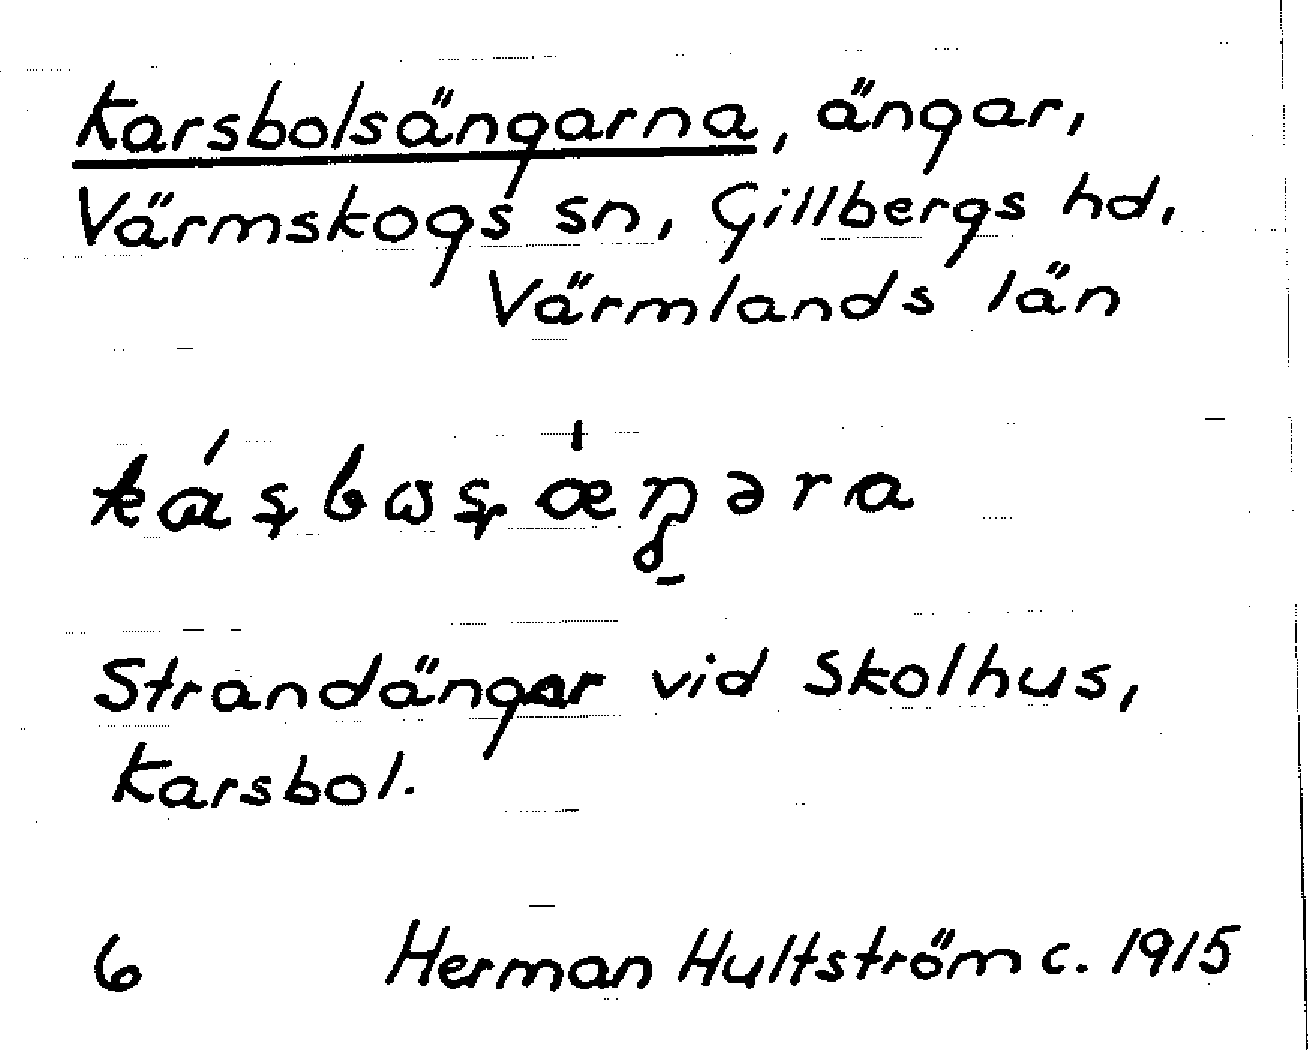 Karsbolsängarna, ängar,
Värmskogs sn, Gillbergs hd,
Värmlands län
Strandängar vid Skolhus,
Karsbol.
6 Herman Hultström c. 1915